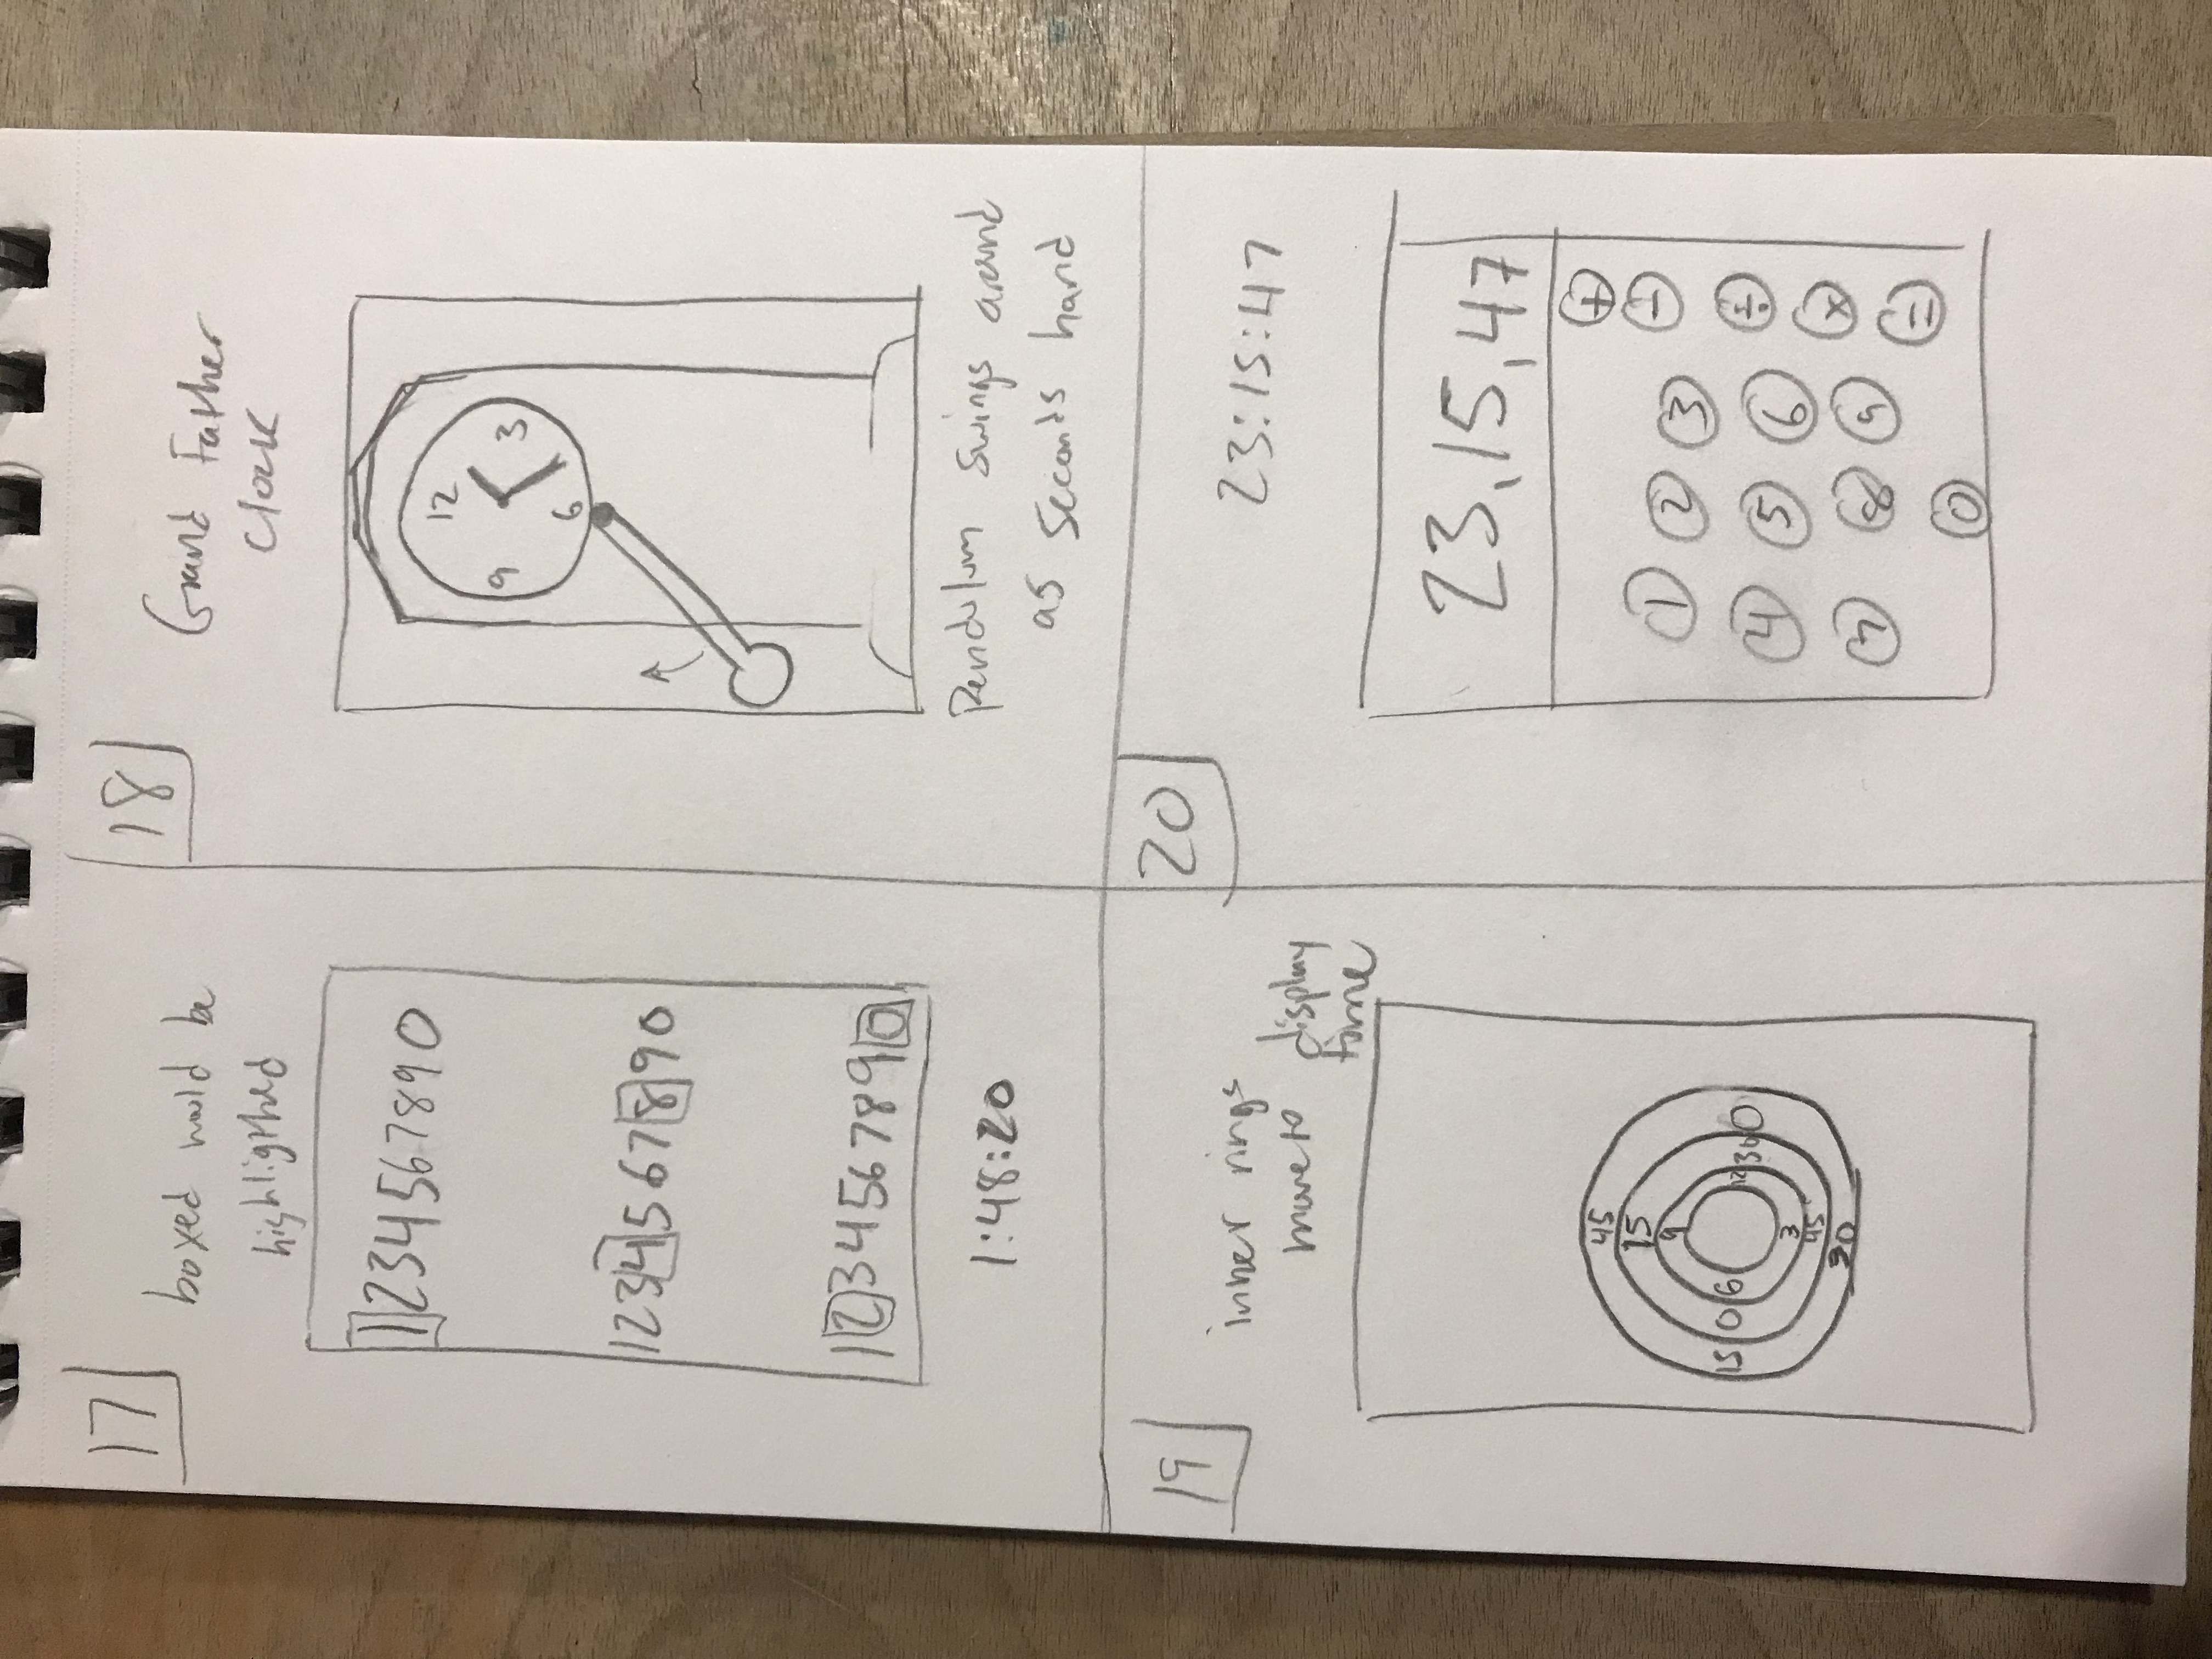 17
boxed would be
highligthed
1234567890
1234567890
1234567890
1:48:20
18
Grand Father
Clock
12
9
3
6
Pendulum swings around
as seconds hand
19
inner rings
move to display
time
45
15
9
15 0 6 12 30 0
3
45
30
20
23:15:47
23,15,47
+
1 2 3 -
4 5 6 ÷
7 8 9 x
=
0